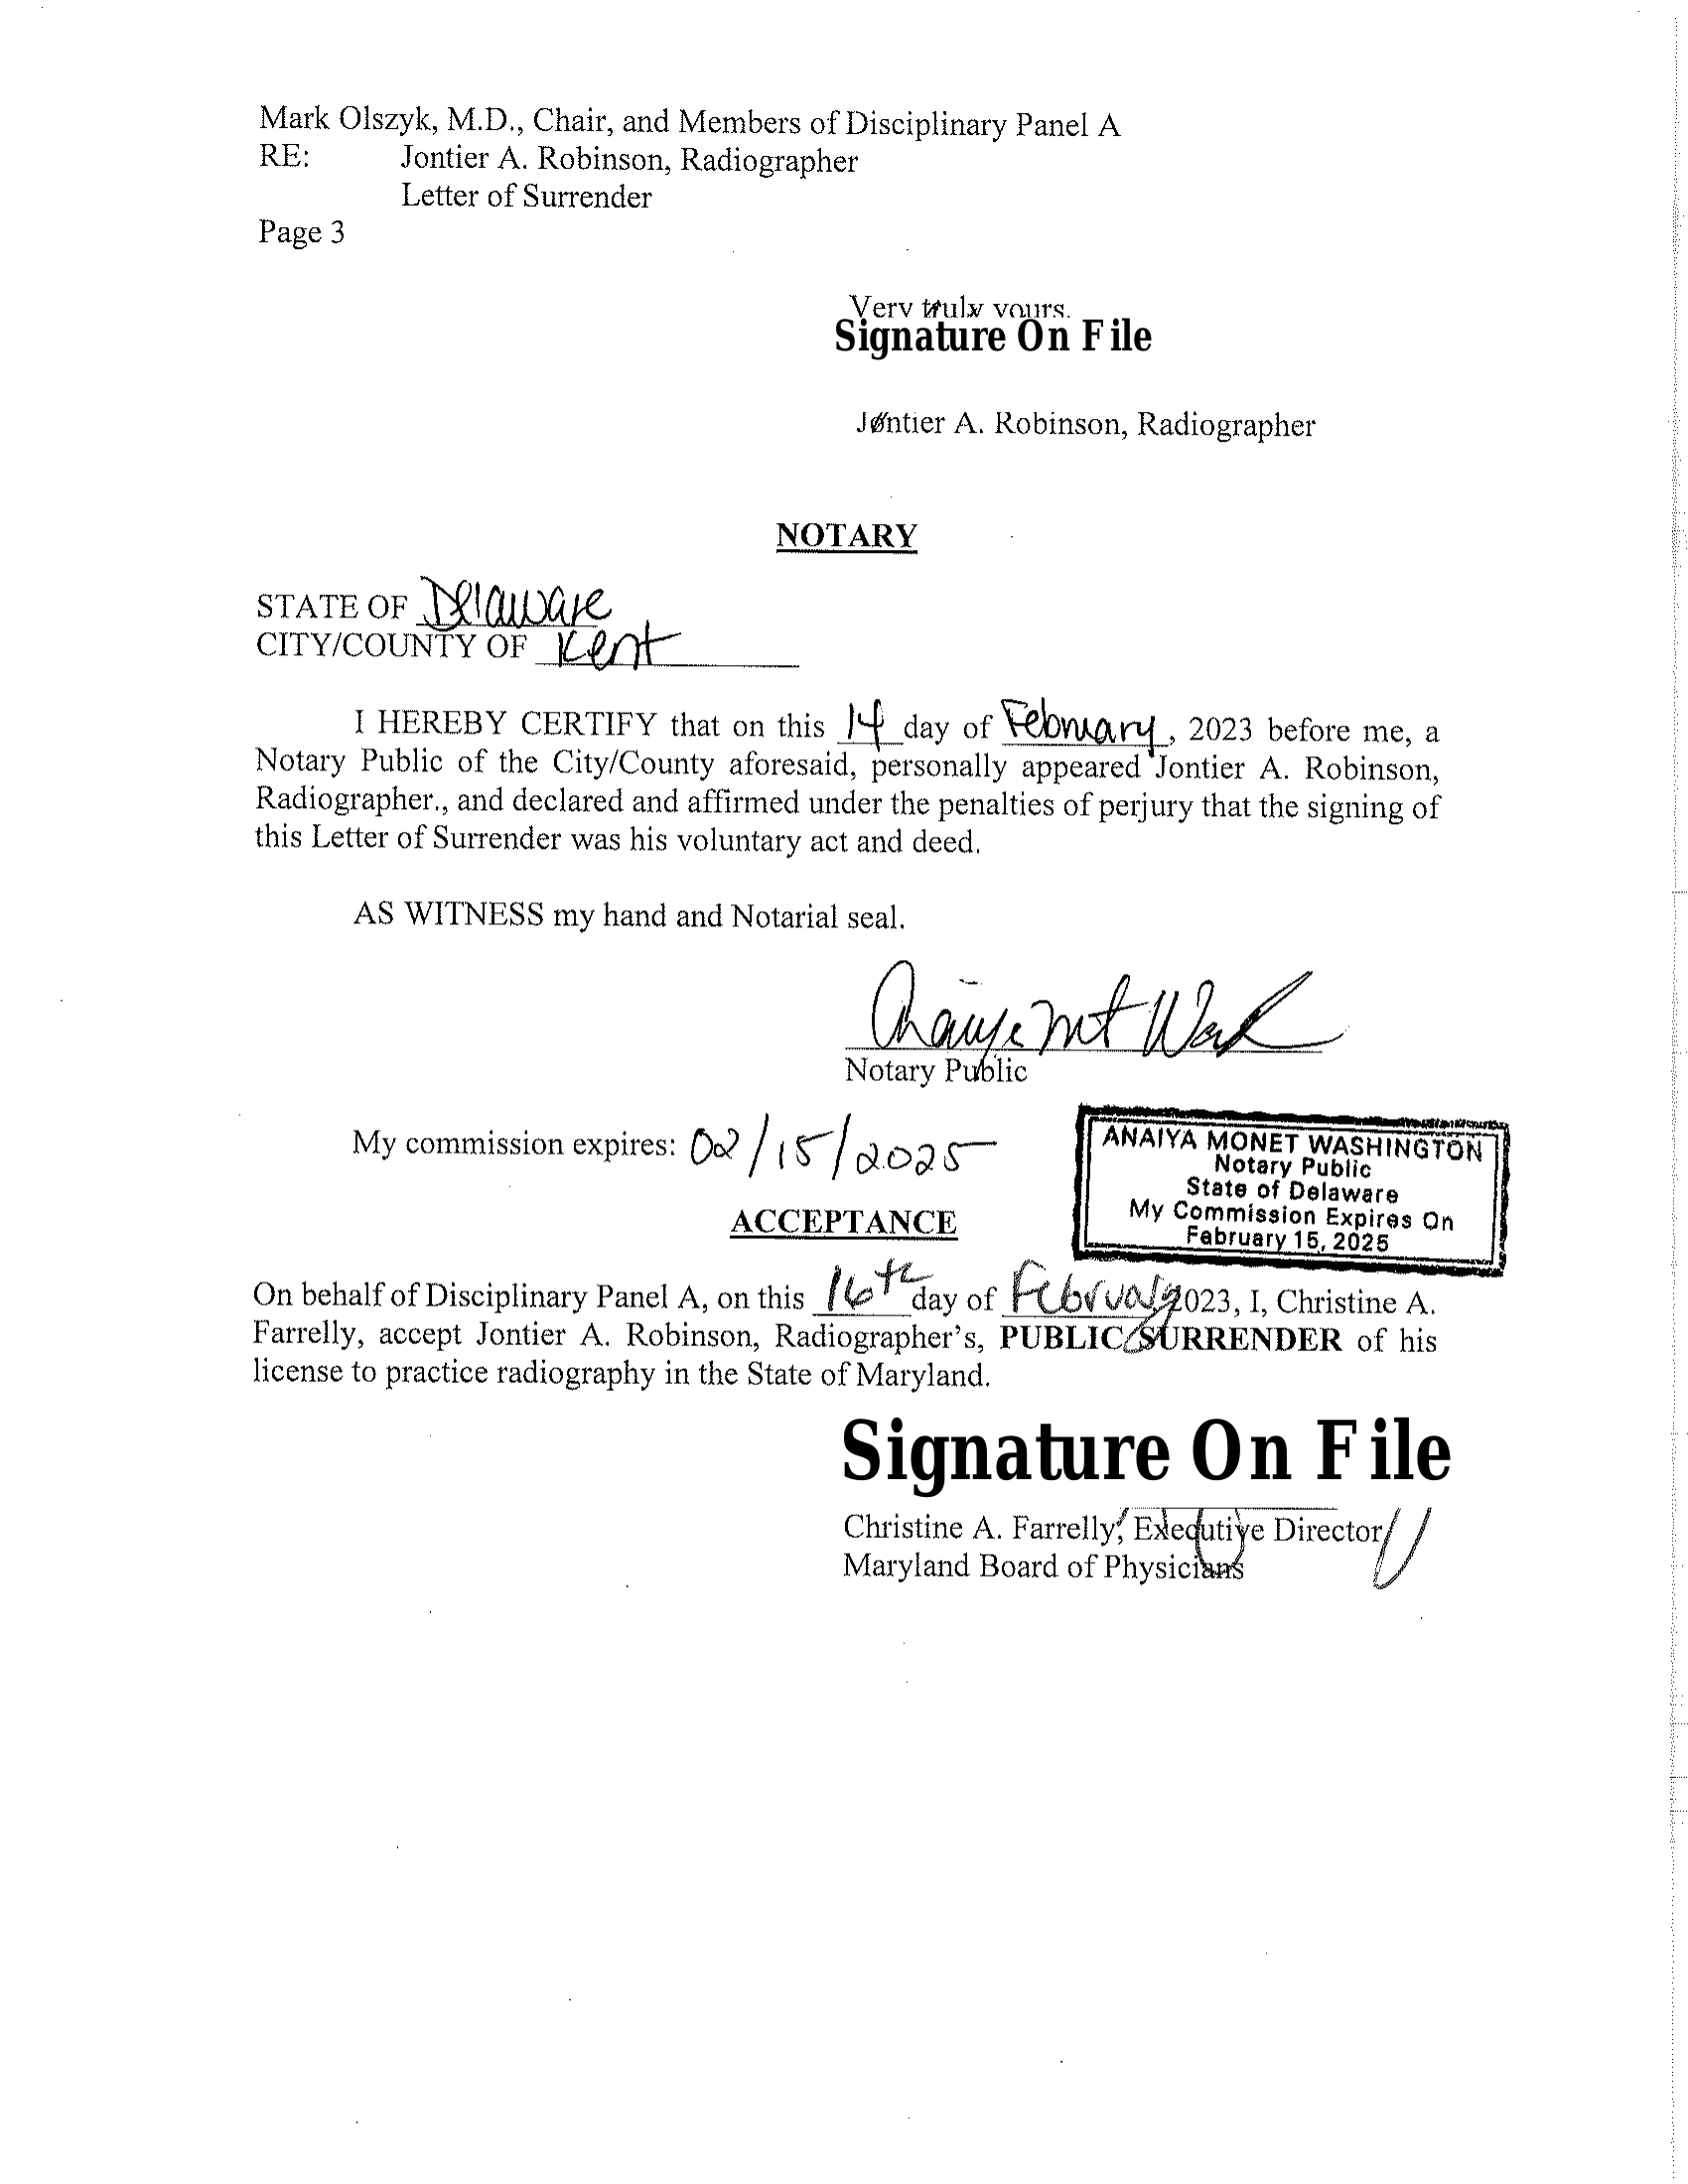 Mark Olszyk, M.D., Chair, and Members of Disciplinary Panel A
RE: Jontier A. Robinson, Radiographer
Letter of Surrender
Page 3
Very truly yours,
Signature On File
Jontier A. Robinson, Radiographer
NOTARY
STATE OF Delaware
CITY/COUNTY OF Kent
I HEREBY CERTIFY that on this 14 day of February, 2023 before me, a
Notary Public of the City/County aforesaid, personally appeared Jontier A. Robinson,
Radiographer., and declared and affirmed under the penalties of perjury that the signing of
this Letter of Surrender was his voluntary act and deed.
AS WITNESS my hand and Notarial seal.
Notary Public
My commission expires: 02/15/2025
ANAIYA MONET WASHINGTON
Notary Public
State of Delaware
My Commission Expires On
February 15, 2025
ACCEPTANCE
On behalf of Disciplinary Panel A, on this 16th day of February 2023, I, Christine A.
Farrelly, accept Jontier A. Robinson, Radiographer's, PUBLIC SURRENDER of his
license to practice radiography in the State of Maryland.
Signature On File
Christine A. Farrelly, Executive Director
Maryland Board of Physicians